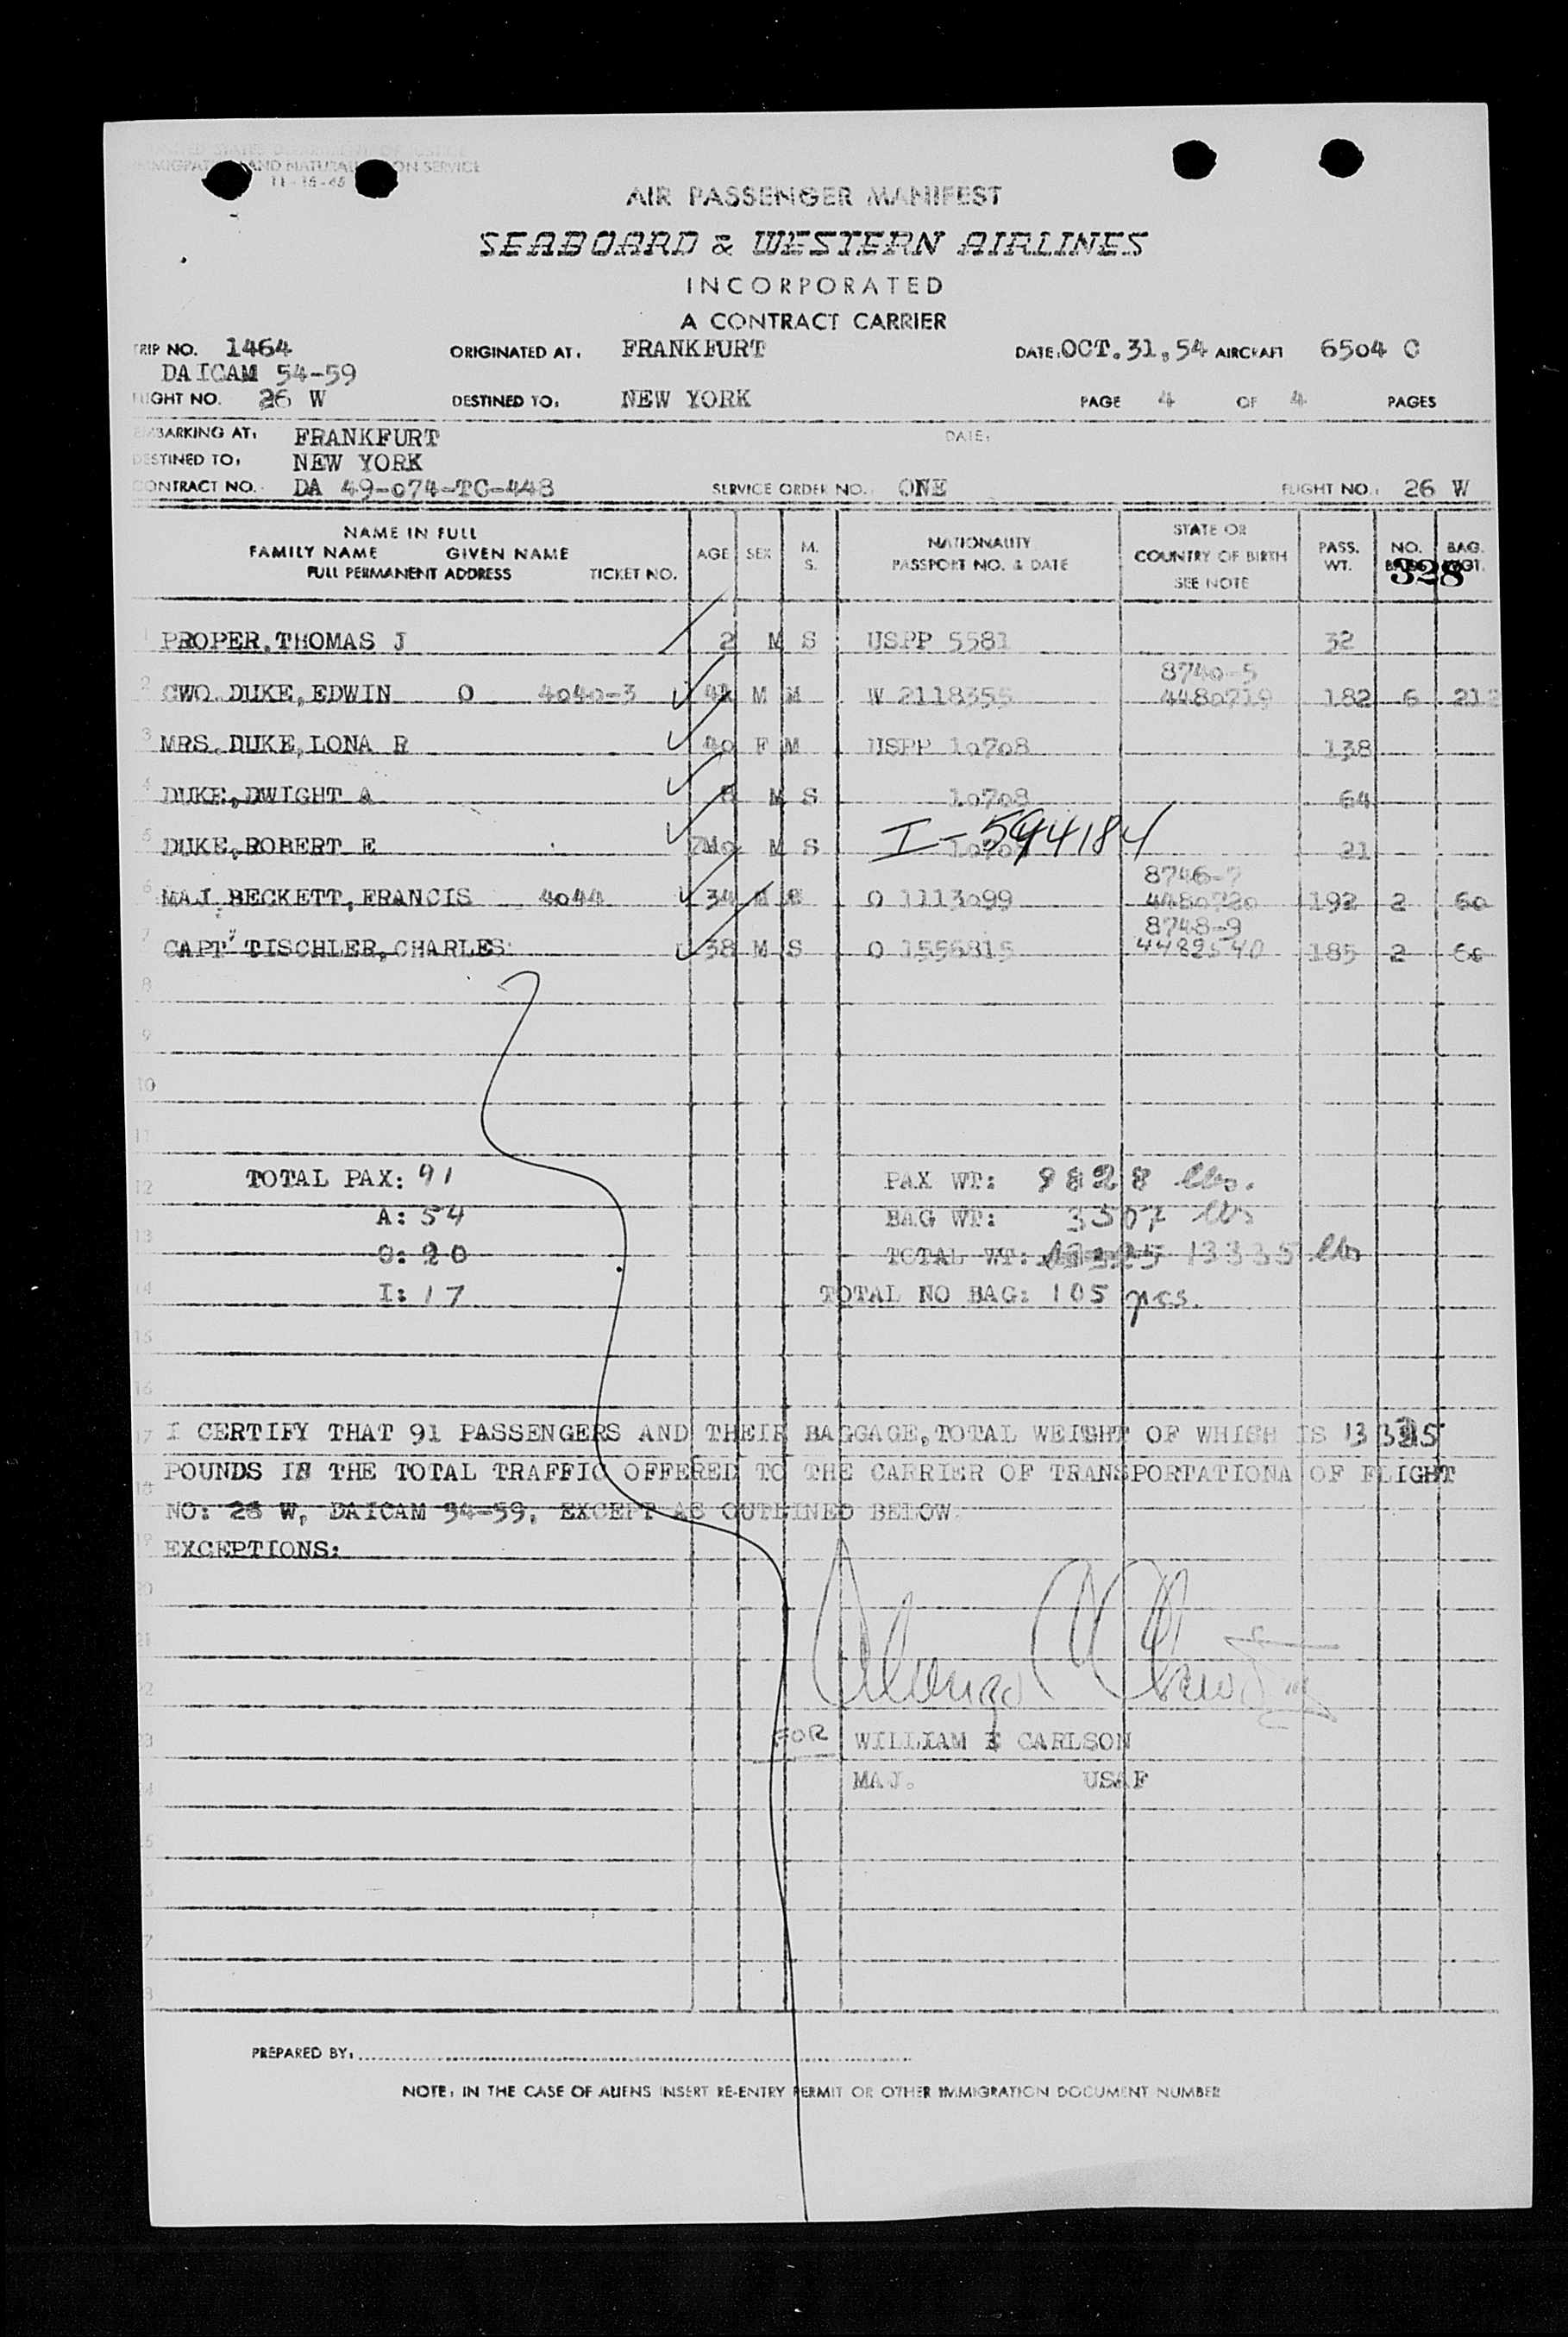 UNITED STATES DEPARTMENT OF JUSTICE
IMMIGRATION AND NATURALIZATION SERVICE
11-15-45
AIR PASSENGER MANIFEST
SEABOARD & WESTERN AIRLINES
INCORPORATED
A CONTRACT CARRIER
TRIP NO. 1464 ORIGINATED AT: FRANKFURT DATE: OCT. 31, 54 AIRCRAFT 6504 C
DAICAM 54-59
FLIGHT NO. 26 W DESTINED TO: NEW YORK PAGE 4 OF 4 PAGES
EMBARKING AT: FRANKFURT DATE:
DESTINED TO: NEW YORK
CONTRACT NO. DA 49-074-TC-448 SERVICE ORDER NO. ONE FLIGHT NO.: 26 W
NAME IN FULL
FAMILY NAME GIVEN NAME
FULL PERMANENT ADDRESS TICKET NO. AGE SEX M. S. NATIONALITY PASSPORT NO. & DATE STATE OR COUNTRY OF BIRTH SEE NOTE PASS. WT. NO. BAG. WGT.
328
1 PROPER, THOMAS J 2 M S USPP 5581 32
8740-5
2 CWO. DUKE, EDWIN O 4040-3 M M W 2118355 4480719 182 6 212
3 MRS. DUKE, LONA R 40 F M USPP 10708 138
4 DUKE, DWIGHT A 8 M S 10708 64
5 DUKE, ROBERT E 7Mo M S I-594184 21
8746-7
6 MAJ. BECKETT, FRANCIS 4044 34 M O 1113099 4480720 192 2 60
8748-9
7 CAPT TISCHLER, CHARLES 38 M S O 1556815 4482540 185 2 60
8
9
10
11
12 TOTAL PAX: 91 PAX WT: 9828 lbs.
A: 54 BAG WT: 3507 lbs
13 C: 20 TOTAL WT: 13335 lbs
14 I: 17 TOTAL NO BAG: 105 pcs.
15
16
17 I CERTIFY THAT 91 PASSENGERS AND THEIR BAGGAGE, TOTAL WEIGHT OF WHICH IS 13335
18 POUNDS IS THE TOTAL TRAFFIC OFFERED TO THE CARRIER OF TRANSPORTATIONA OF FLIGHT
NO: 26 W, DAICAM 54-59, EXCEPT AS OUTLINED BELOW.
19 EXCEPTIONS:
20
21
22
23 FOR WILLIAM E CARLSON
24 MAJ. USAF
PREPARED BY:
NOTE: IN THE CASE OF ALIENS INSERT RE-ENTRY PERMIT OR OTHER IMMIGRATION DOCUMENT NUMBER